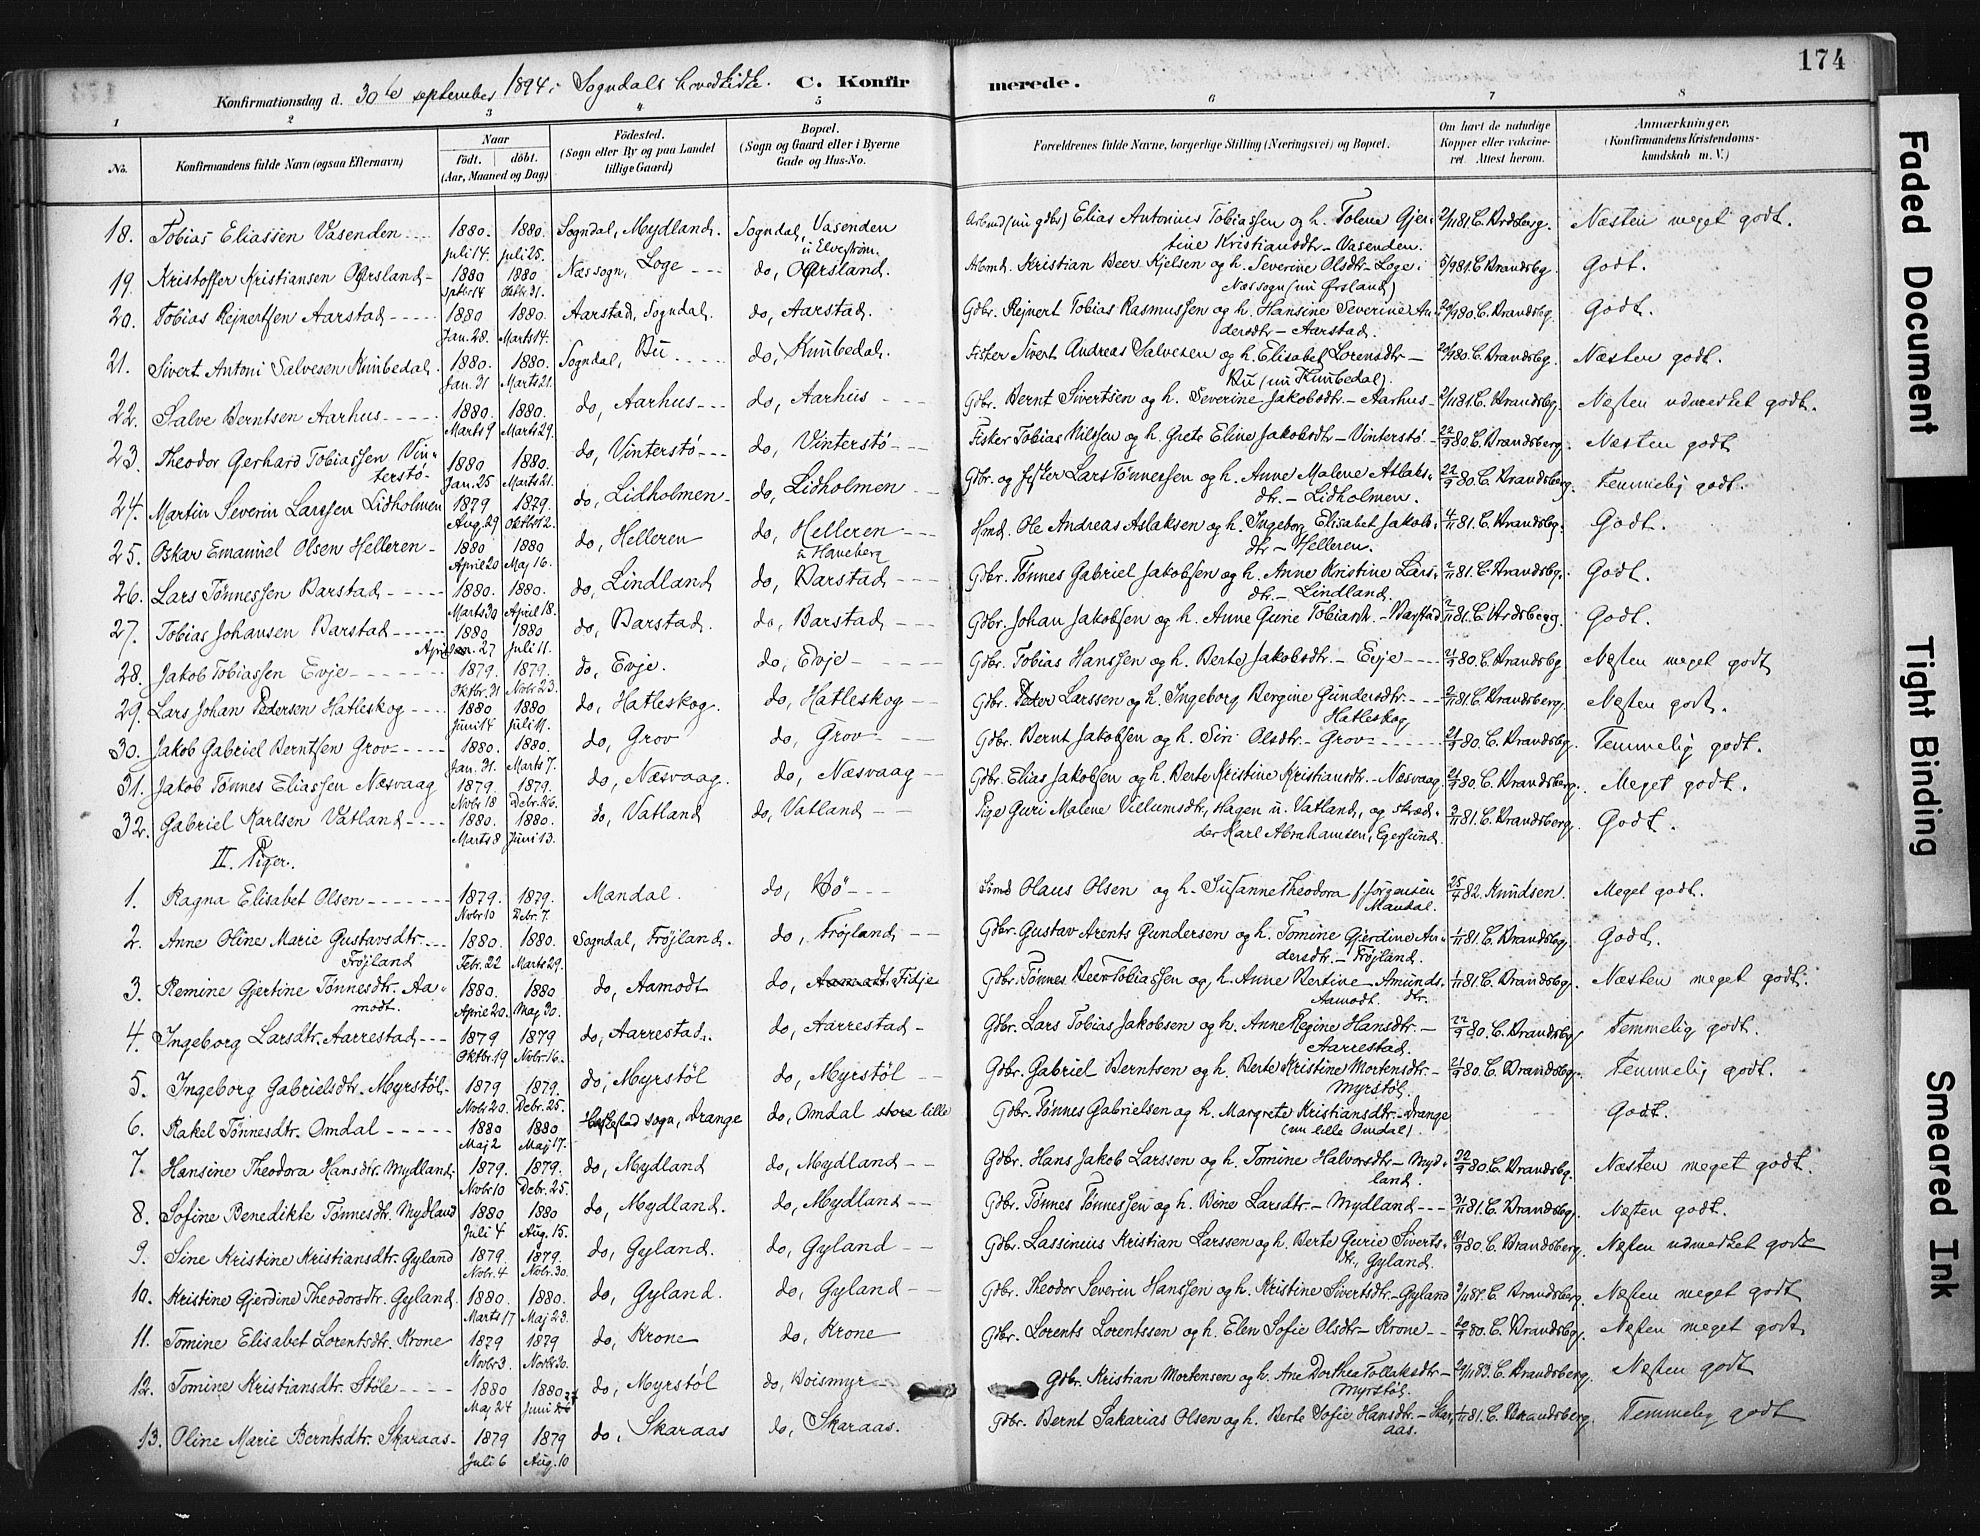 174
Konfirmationsdag d. 30te september 1894 i Sogndals hovedkirke. C. Konfirmerede.
1 2 3 4 5 6 7 8
No. Konfirmandens fulde Navn (ogsaa Efternavn) Naar födt. döbt. (Aar, Maaned og Dag) Födested. (Sogn eller By og paa Landet tillige Gaard) Bopæl. (Sogn og Gaard eller i Byerne Gade og Hus-No. Forældrenes fulde Navne, borgerlige Stilling (Næringsvei) og Bopæl. Om havt de naturlige Kopper eller vakcineret. Attest herom. Anmærkninger. (Konfirmandens Kristendomskundskab m. V.)
18. Tobias Eliassen Vasenden 1880. 1880. Sogndal, Mydland. Sogndal, Vasenden Arbmd (nu gdbr) Elias Antonius Tobiassen og h. Tolene Gjer- 2/11 81. C. Brdsberg. Næsten meget godt.
Juli 14. Juli 25. u. Elvestrøm. tine Kristiansdtr - Vasenden.
19. Kristoffer Kristiansen Ørsland 1880 1880. Næs sogn, Loge do, Ørsland. Arbmd. Kristian Beer Kjelsen og h. Severine Olsdtr - Loge i 5/9 81. C. Brandsbg. Godt.
Septbr 14 Oktbr. 31. Næs sogn (nu Ørsland)
20. Tobias Rejnertsen Aarstad 1880 1880. Aarstad, Sogndal. do, Aarstad. Gdbr. Rejnert Tobias Rasmussen og h. Hansine Severine An- 20/9 80. C. Brandsbg. Godt.
Jan. 28. Marts 14. dersdtr - Aarstad.
21. Sivert Antoni Salvesen Knubedal. 1880. 1880. Sogndal, Bu do, Knubedal. Fisker Sivert Andreas Salvesen og h. Elisabet Lorensdtr - 20/9 80. C. Brandsbg. Næsten godt.
Jan. 31 Marts 21. Bu (nu Knubedal).
22. Salve Berntsen Aarhus 1880. 1880. do, Aarhus do, Aarhus Gdbr. Bernt Sivertsen og h. Severine Jakobsdtr - Aarhus 2/11 81. C. Brandsbg. Næsten udmerket godt.
Marts 9 Marts 29.
23. Theodor Gerhard Tobiassen Vin- 1880 1880. do, Vinterstø do, Vinterstø Fisker Tobias Nilssen og h. Grete Eline Jakobsdtr - Vinterstø 22/9 80. C. Brandsberg. Næsten godt
terstø Jan. 25 Marts 21.
24. Martin Severin Larssen Lidholmen 1879 1879. do, Lidholmen do, Lidholmen Gdbr. og fisker Lars Tønnessen og h. Anne Malene Aslaks- 22/9 80. C. Brandsberg. Temmelig godt.
Aug. 29 Oktbr 12. dtr. - Lidholmen.
25. Oskar Emanuel Olsen Helleren 1880 1880 do, Helleren do, Helleren Hmd. Ole Andreas Aslaksen og h. Ingeborg Elisabet Jakobs- 4/11 81. C. Brandsbg. Godt.
April 20 Maj 16. å Haneberg dtr - Helleren.
26. Lars Tønnessen Barstad 1880. 1880. do, Lindland do, Barstad Gdbr. Tønnes Gabriel Jakobsen og h. Anne Kristine Lars- 2/11 81. C. Brandsbg. Godt.
Marts 30 April 18. dtr. - Lindland.
27. Tobias Johansen Barstad 1880 1880 do, Barstad. do, Barstad Gdbr. Johan Jakobsen og h. Anne Gurie Tobiasdt. - Barstad 2/11 81. C. Brdsberg. Godt.
April 27 Juli 11.
28. Jakob Tobiassen Evje 1879. 1879. do, Evje. do, Evje Gdbr. Tobias Hanssen og h. Berte Jakobsdtr. - Evje 21/9 80. C. Brandsbg Næsten meget godt
Oktbr. 31 Novbr. 23.
29. Lars Johan Pedersen Hatleskog 1880 1880 do, Hatleskog. do, Hatleskog Gdbr. Peder Larssen og h. Ingeborg Bergine Gundersdtr. 2/11 81. C. Brandsberg. Næsten godt.
Juni 14 Juli 11. Hatleskog
30. Jakob Gabriel Berntsen Grov 1880. 1880. do, Grov do, Grov Gdbr. Bernt Jakobsen og h. Siri Olsdtr. - Grov 21/9 80. C. Brandsbg. Temmelig godt.
Jan. 31. Marts 7.
31. Jakob Tønnes Eliassen Næsvaag 1879. 1879. do, Næsvaag. do, Næsvaag Gdbr. Elias Jakobsen og h. Berte Kristine Kristiansdtr. - Næsvaag 21/9 80. C. Brandsberg. Meget godt.
Novbr 18 Debr. 26.
32. Gabriel Karlsen Vatland 1880. 1880. do, Vatland do, Vatland Pige Guri Malene Villumsdtr, Hagen u. Vatland, og skræd- 2/11 81. C. Brandsberg. Godt.
Marts 8 Juni 13. der Karl Abrahamsen, Egersund.
II. Piger.
1. Ragna Elisabet Olsen 1879. 1879. Mandal. do, Bø Olaus Olsen og h. Susanne Theodora f. Jørgensen 25/4 82. Knudsen. Meget godt.
Novbr 10 Debr. 7. Mandal.
2. Anne Oline Marie Gustavsdtr. 1880. 1880. Sogndal, Frøjland. do, Frøjland Gdbr. Gustav Arents Gundersen og h. Tomine Gjerdine An- 1/11 81. C. Brandsbg. Godt.
Frøjland Febr. 22 Marts 29. dersdtr. - Frøjland.
3. Remine Gjertine Tønnesdtr. Aa- 1880. 1880 do, Aamodt do, Aamodt. Fidje Gdbr. Tønnes Beer Tobiassen og h. Anne Bertine Amunds- 1/11 81. C. Brandsbg. Næsten meget godt.
modt. April 20. Maj 30. Aamodt. dtr.
4. Ingeborg Larsdtr. Aarrestad 1879 1879 do, Aarrestad. do, Aarrestad Gdbr. Lars Tobias Jakobsen og h. Anne Regine Hansdtr. 22/9 80. C. Brandsbg Temmelig godt.
Oktbr. 19 Novbr. 16. Aarrestad.
5. Ingeborg Gabrielsdtr. Myrstøl 1879 1879. do, Myrstøl do, Myrstøl Gdbr. Gabriel Berntsen og h. Berte Kristine Mortensdtr. 21/9 80. C. Brandsbg. Temmelig godt.
Novbr 20. Debr. 25. Myrstøl.
6. Rakel Tønnesdtr. Omdal 1880 1880 sogn, Drange do, Omdal store lille Gdbr. Tønnes Gabrielsen og h. Margrete Kristiansdtr. - Drange Godt.
Maj 2 Maj 17. (nu lille Omdal).
7. Hansine Theodora Hansdtr. Mydland. 1879. 1879. do, Mydland do, Mydland Gdbr. Hans Jakob Larssen og h. Tomine Halvorsdtr - Myd- 22/9 80. C. Brandsbg. Næsten meget godt.
Novbr 10 Debr. 25. land.
8. Sofine Benedikte Tønnesdtr. Mydland 1880 1880 do, Mydland. do, Mydland Gdbr. Tønnes Tønnessen og h. Bine Larsdtr. - Mydland 3/11 81. C. Brandsbg. Næsten godt.
Juli 4 Aug. 15.
9. Sine Kristine Kristiansdtr. Gyland 1879. 1879. do, Gyland. do, Gyland Gdbr. Lassinius Kristian Larssen og h. Berte Gurie Siverts- 21/9 80. C. Brandsbg. Næsten udmerket godt
Novbr. 4 Novbr. 30. dtr, Gyland.
10. Kristine Gjerdine Theodorsdtr. Gyland. 1880. 1880. do, Gyland. do, Gyland Gdbr. Theodor Severin Hanssen og h. Kristine Sivertsdtr. - Gyland 2/11 81. C. Brandsberg. Næsten meget godt
Marts 17 Maj 23.
11. Tomine Elisabet Lorentsdtr. Krone 1879 1879 do, Krone do, Krone Gdbr. Lorents Lorentssen og h. Elen Sofie Olsdtr - Krone 20/9 80. C. Brandsbg. Næsten meget godt
Novbr 3. Novbr 30.
12. Tomine Kristiansdtr. Støle 1880 1880 do, Myrstøl do, Boismyr Gdbr. Kristian Mortensen og h. Ane Dorthea Tollaksdtr - 29/11 83. C. Brandsberg. Næsten godt
Maj 24 Juni Myrstøl.
13. Oline Marie Berntsdtr. Skaraas 1879 1879 do, Skaraas do, Skaraas. Gdbr. Bernt Sakarias Olsen og h. Berte Sofie Hansdtr. - Skar- 1/11 81. C. Brandsberg. Temmelig godt
Juli 6 Aug. 10 aas.
Faded Document
Tight Binding
Smeared Ink